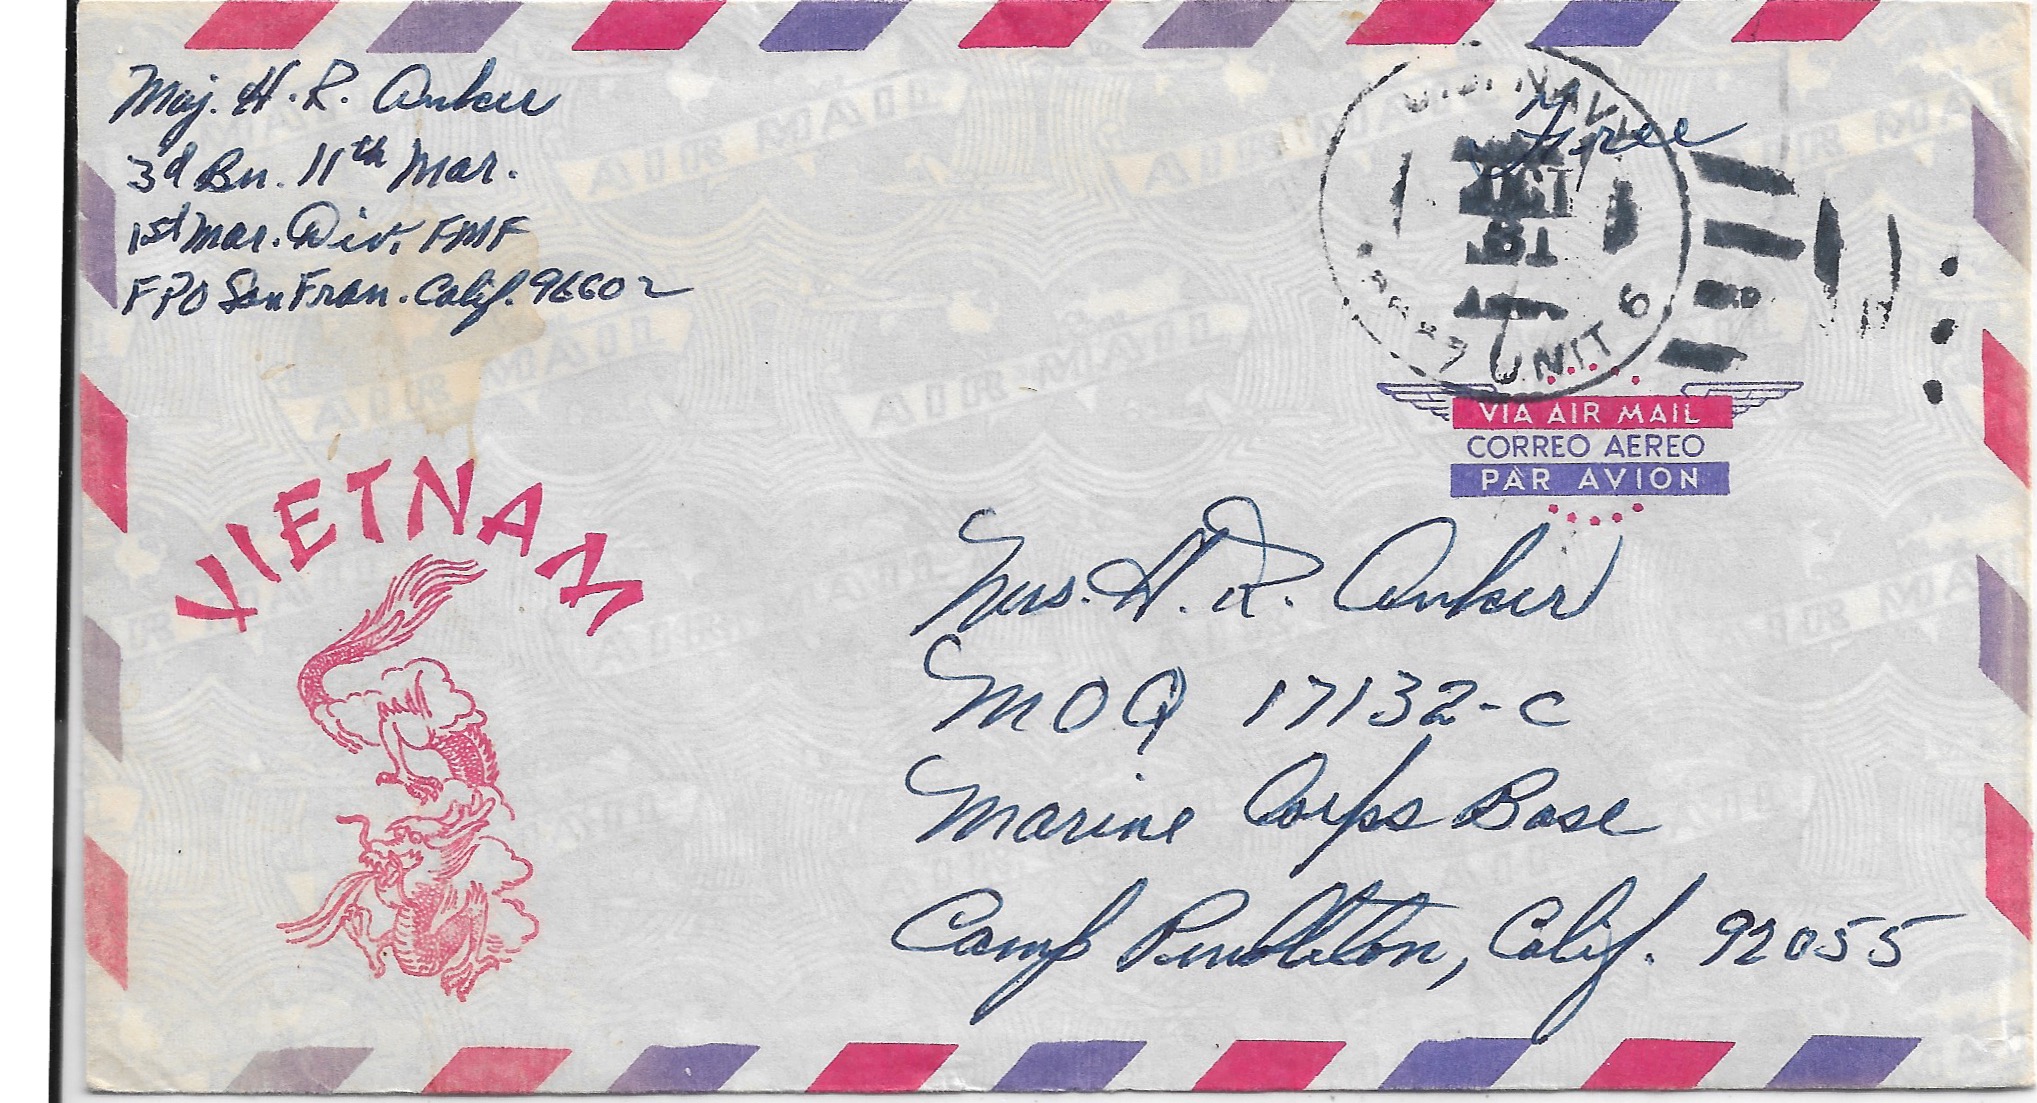 Maj. H. R. Anker
3d Bn. 11th Mar.
1st Mar. Div. FMF
FPO San Fran. Calif. 96602
Free
UNIT 6
VIA AIR MAIL
CORREO AEREO
PAR AVION
VIETNAM
Mrs. H. R. Anker
MOQ 17132-C
Marine Corps Base
Camp Pendleton, Calif. 92055